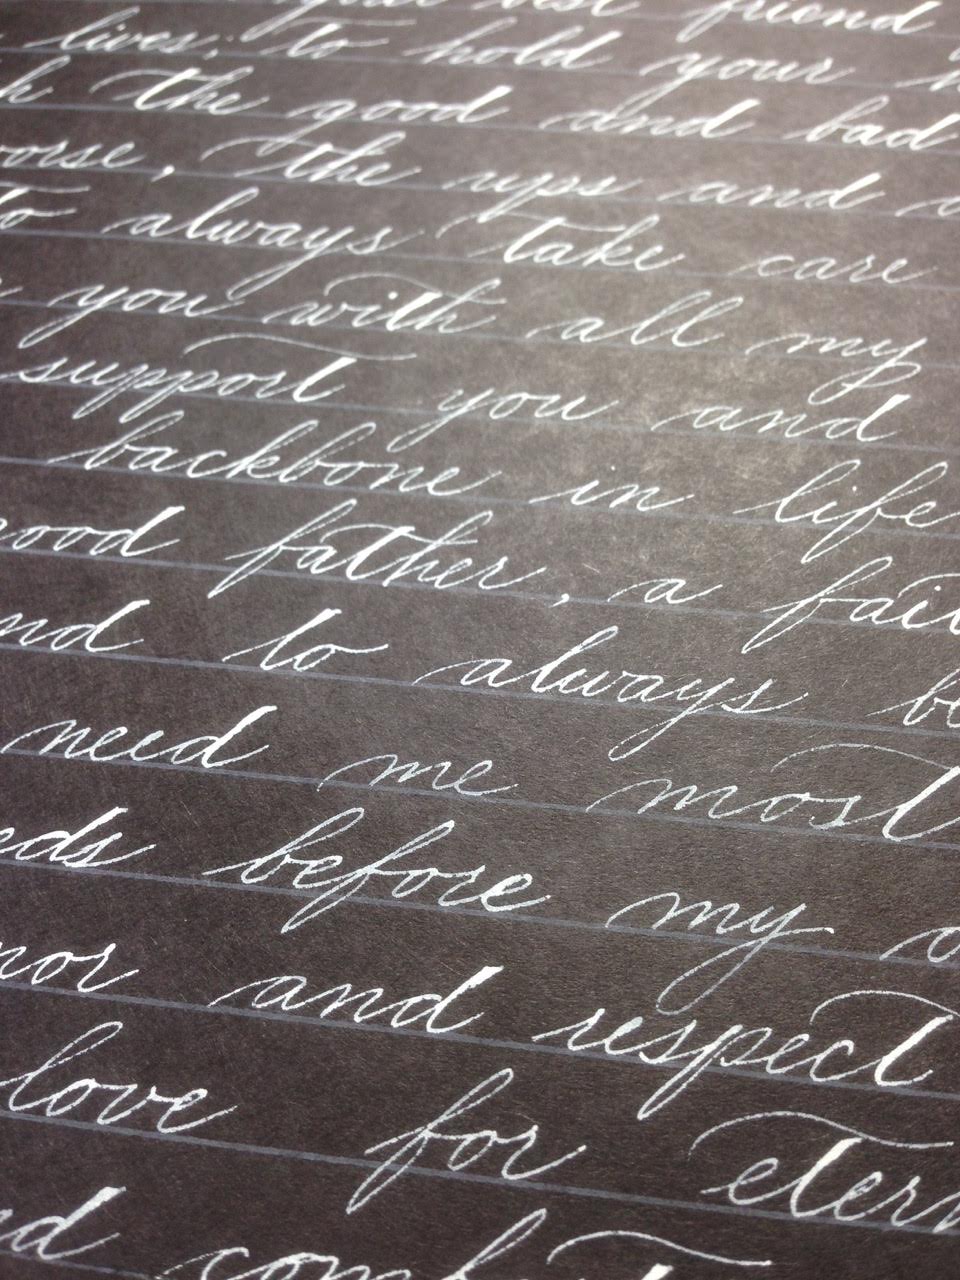 your best friend
lives; to hold your
the good and bad
the ups and
to always take care
you with all my
support you and
backbone in life
father, a
to always
need me most
before my
and respect
love for